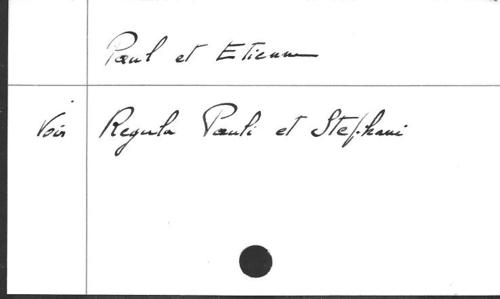 Paul et Etienne
Voir Regula Pauli et Stephani